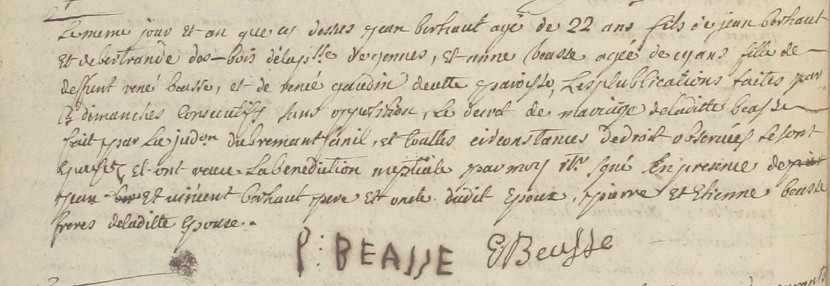 Le meme jour et an que cy dessus jean berhaut agé de 22 ans fils de jean berhaut
et de bertrande dos-bois de la psse de yennes, et anne beasse agée de 19 ans fille de
deffunt rené beasse, et de renée gaudin de cette paroisse, les publications faites par
3 dimanches consecutifs sans opposition, le decret de mariage de laditte beasse
fait par la judon du bremant fénil, et touttes circonstances de droit observées se sont
epousés et ont receu la benediction nuptiale par moy rr signé en presence de
jean et vincent berhaut pere et oncle dudit epoux, pierre et Etienne beasse
freres de laditte epouse.
P: BEASSE E Beasse